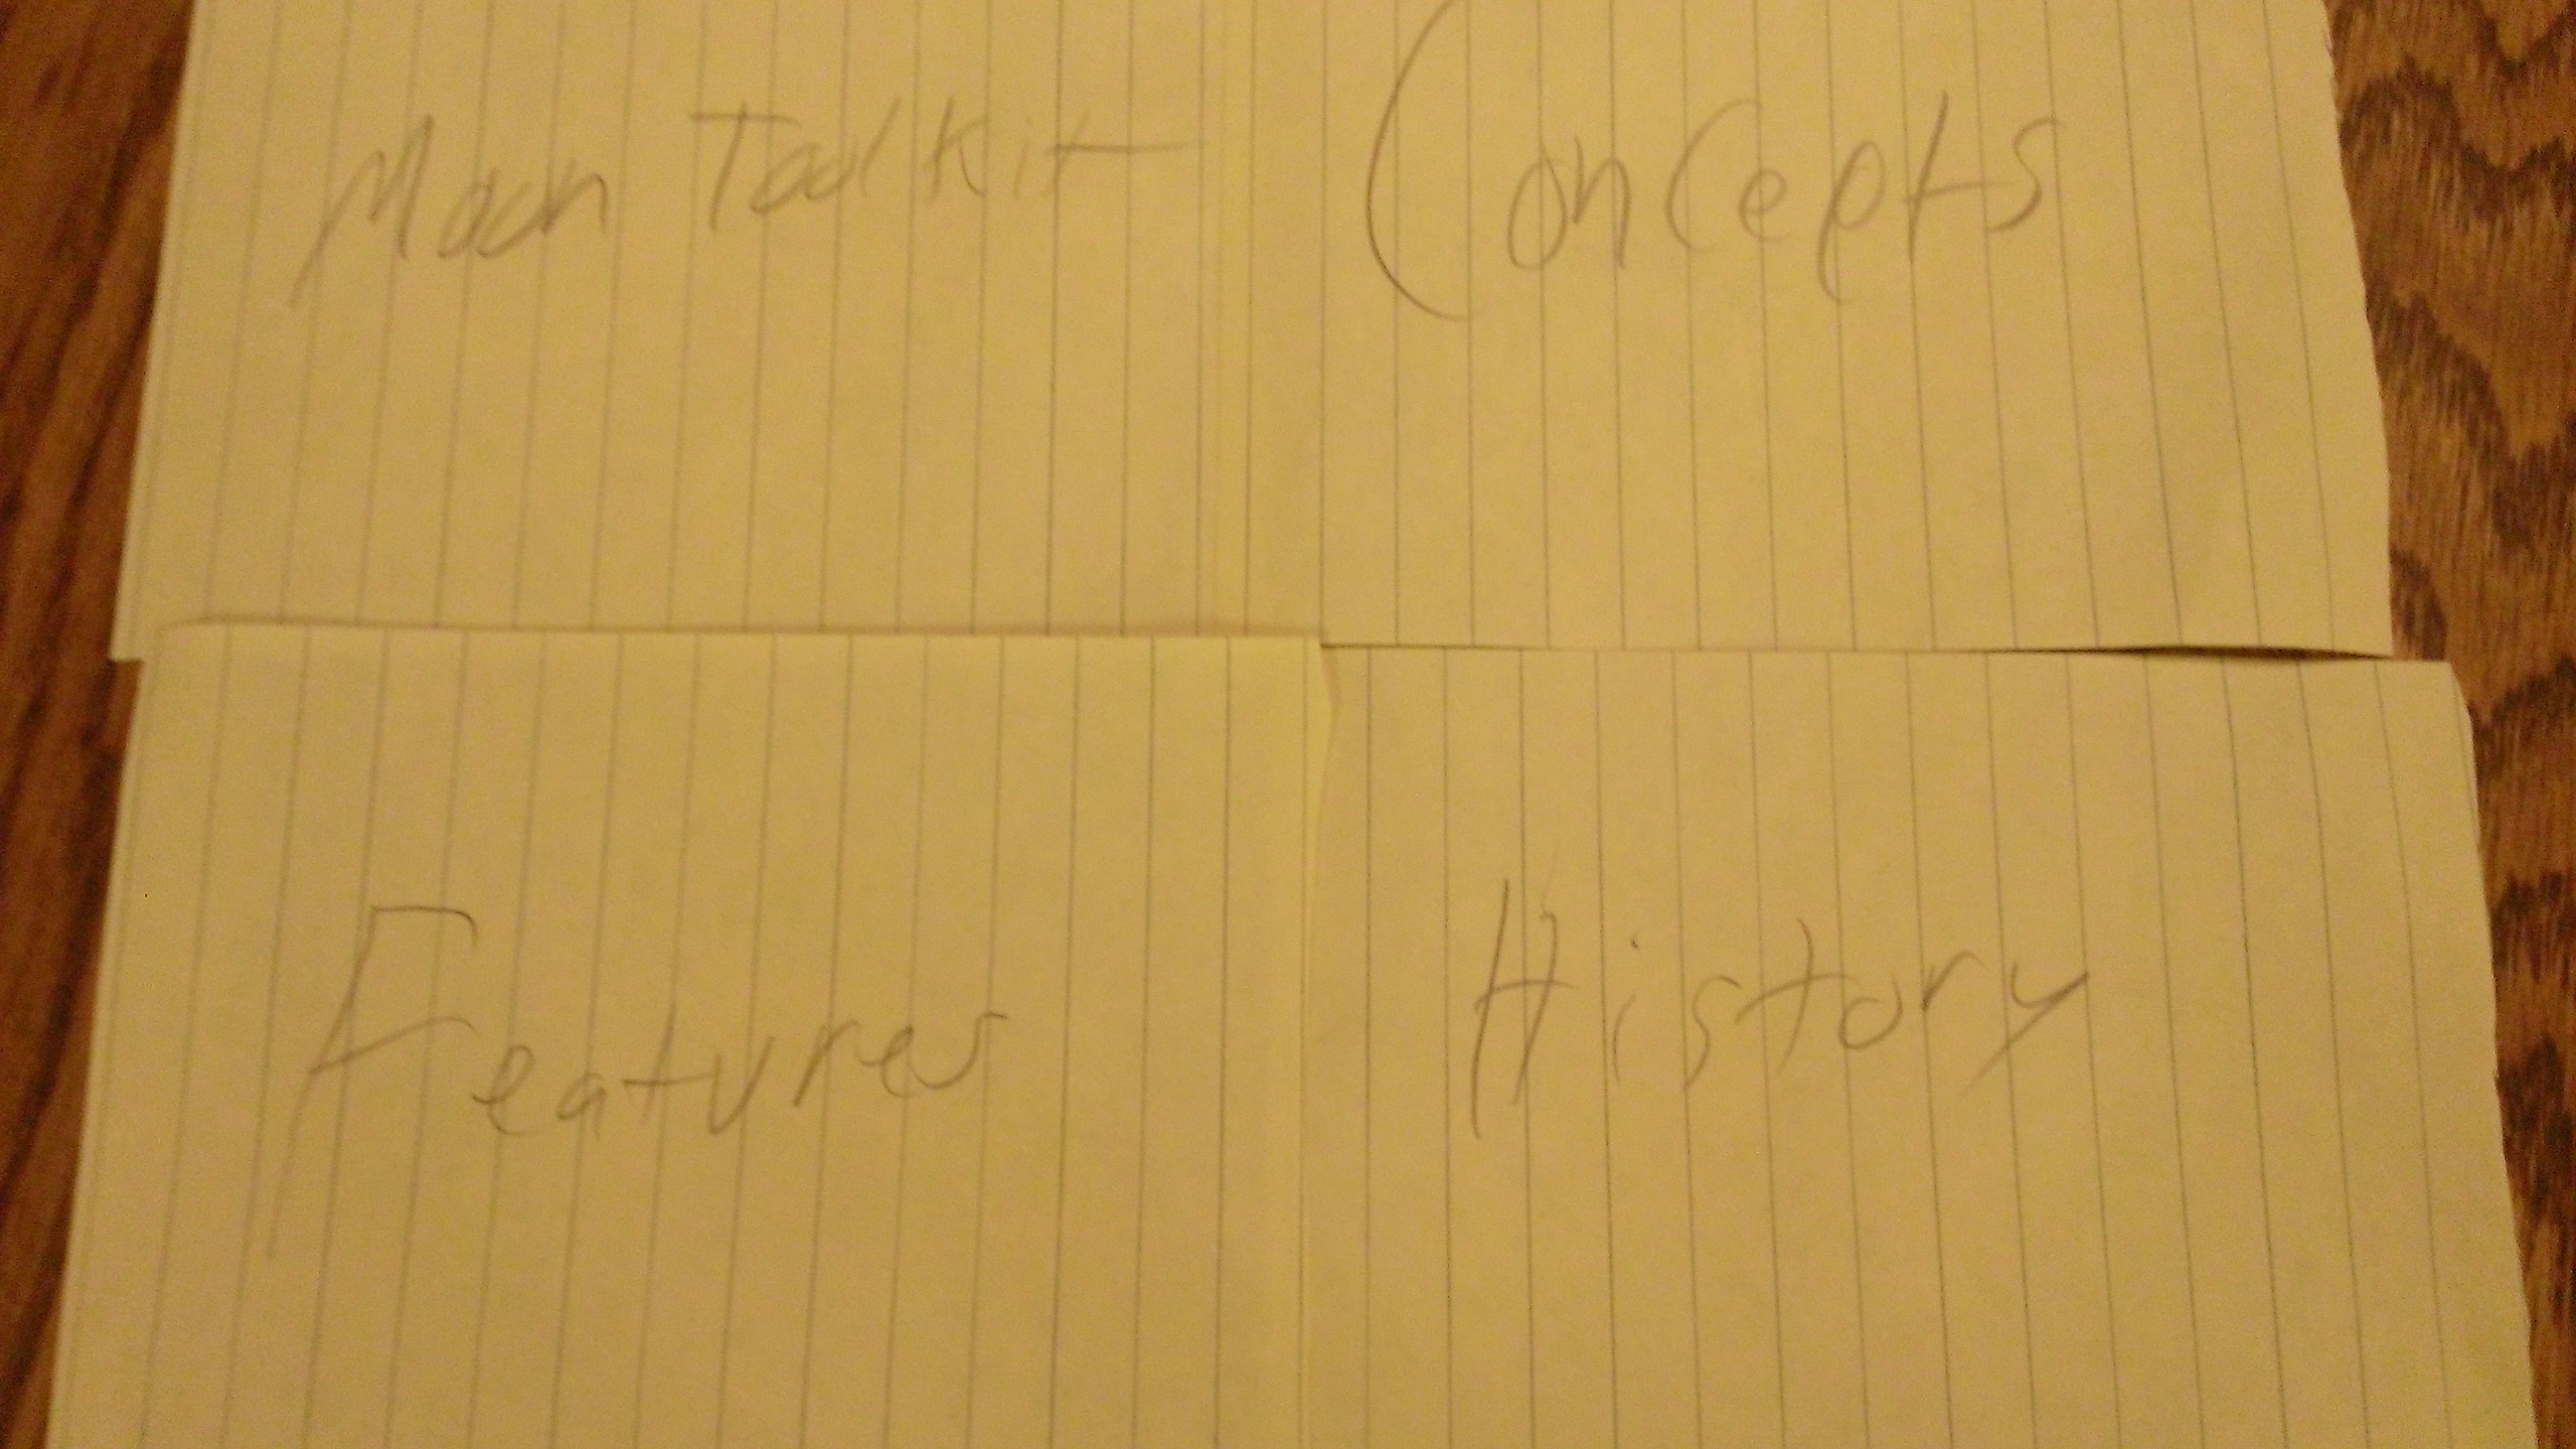 Moon Toolkit
Concepts
Features
History